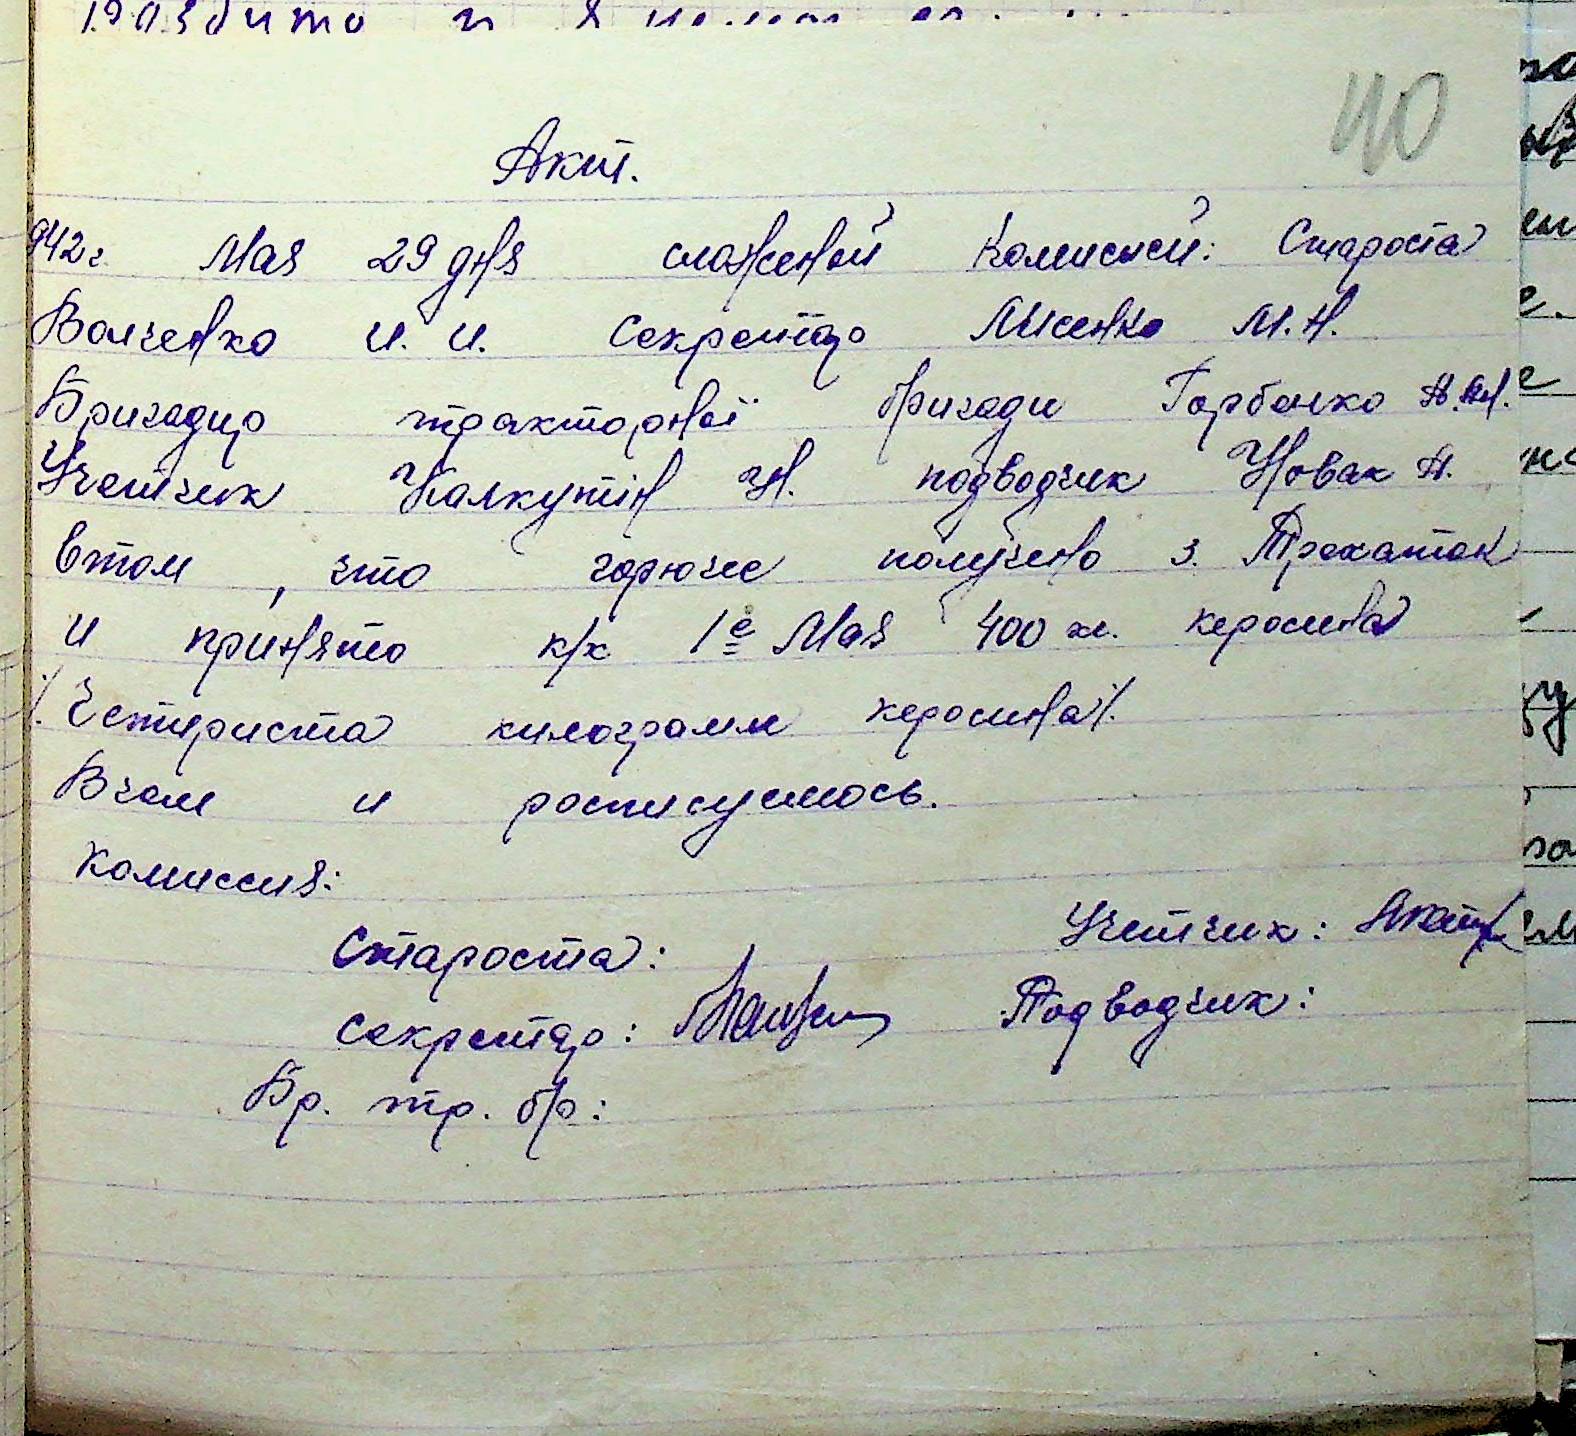 40
Акт.
942 г. Мая 29 дня сложеной комисией: Староста
Волченко И. И. Секретар Лисенко М. Н.
Бригадир тракторної бригади Горбенко
Учетчик Калкутін Н. подводчик Новак А.
втом, что горюче получено з. Трохаток
и принято к/х 1е Мая 400 кг. керосина
/. Четириста килограмм керосина /.
Вчом и росписуемось.
Комиссия:
Староста: Учетчик:
Секретар: Подводчик:
Бр. тр. бр: